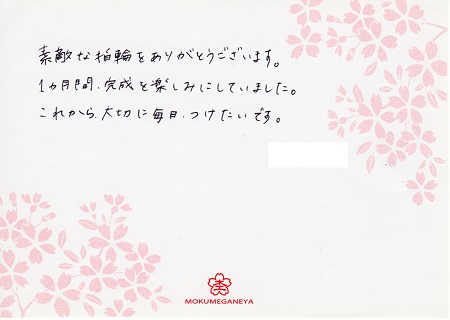 素敵な指輪をありがとうございます。
1ヵ月間、完成を楽しみにしていました。
これから、大切に毎日、つけたいです。
MOKUMEGANEYA